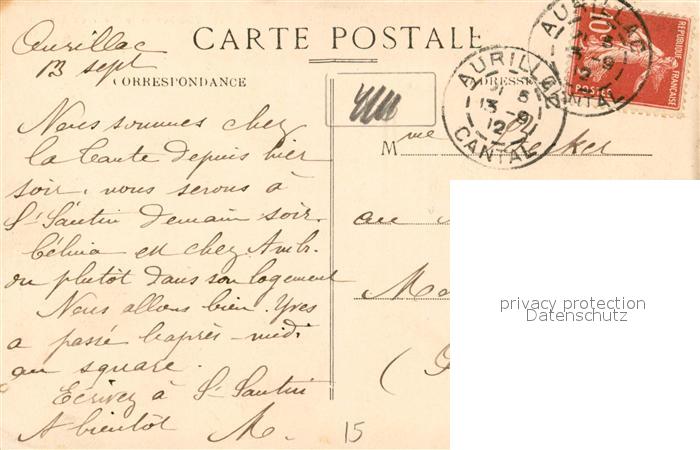 Aurillac
13 sept
CARTE POSTALE
CORRESPONDANCE
ADRESSE
AURILLAC
21 5
13 -9
12
CANTAL
AURILLAC
13 -9
12
CANTAL
RÉPUBLIQUE FRANÇAISE
10
POSTES
Nous sommes chez
la tante depuis hier
soir. nous serons à
St Santin demain soir.
Célina est chez Amb.
ou plutôt dans son logement
Nous allons bien. Yves
a passé l'après-midi
au square.
Ecrivez à St Santin
A bientôt M.
15
Mme
au
(
privacy protection
Datenschutz